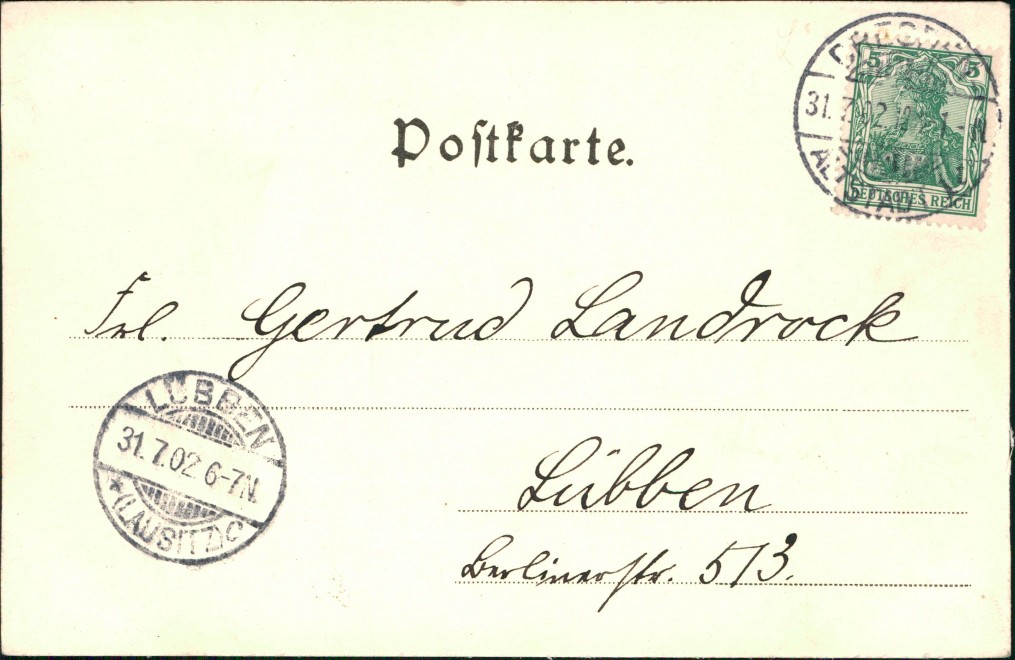 Postkarte.
5 5
DEUTSCHES REICH
31.7.02
ALTSTADT
Frl. Gertrud Landrock
LÜBBEN
31.7.02 6-7N.
*(LAUSITZ)C
Lübben
Berlinerstr. 513.